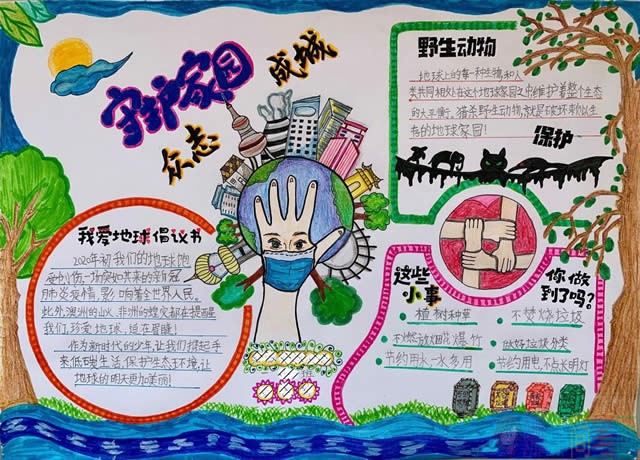 守护家园
众志
成城
我爱地球倡议书
2020年初我们的地球饱
受创伤,一场突如其来的新冠
肺炎疫情,影响着全世界人民。
此外,澳洲的山火,非洲的蝗灾都在提醒
我们,珍爱地球,迫在眉睫!
作为新时代的少年,让我们撑起手
来低碳生活,保护生态环境,让
地球的明天更加美丽!
野生动物
地球上的每一种生物和人
类共同相处在这个地球家园之中维护着整个生态
的大平衡。猎杀野生动物,就是破坏赖以生
存的地球家园!
保护
这些
小事
你做
到了吗?
植树种草
不焚烧垃圾
不燃放烟花爆竹
做好垃圾分类
节约用水一水多用
节约用电,不点长明灯
班